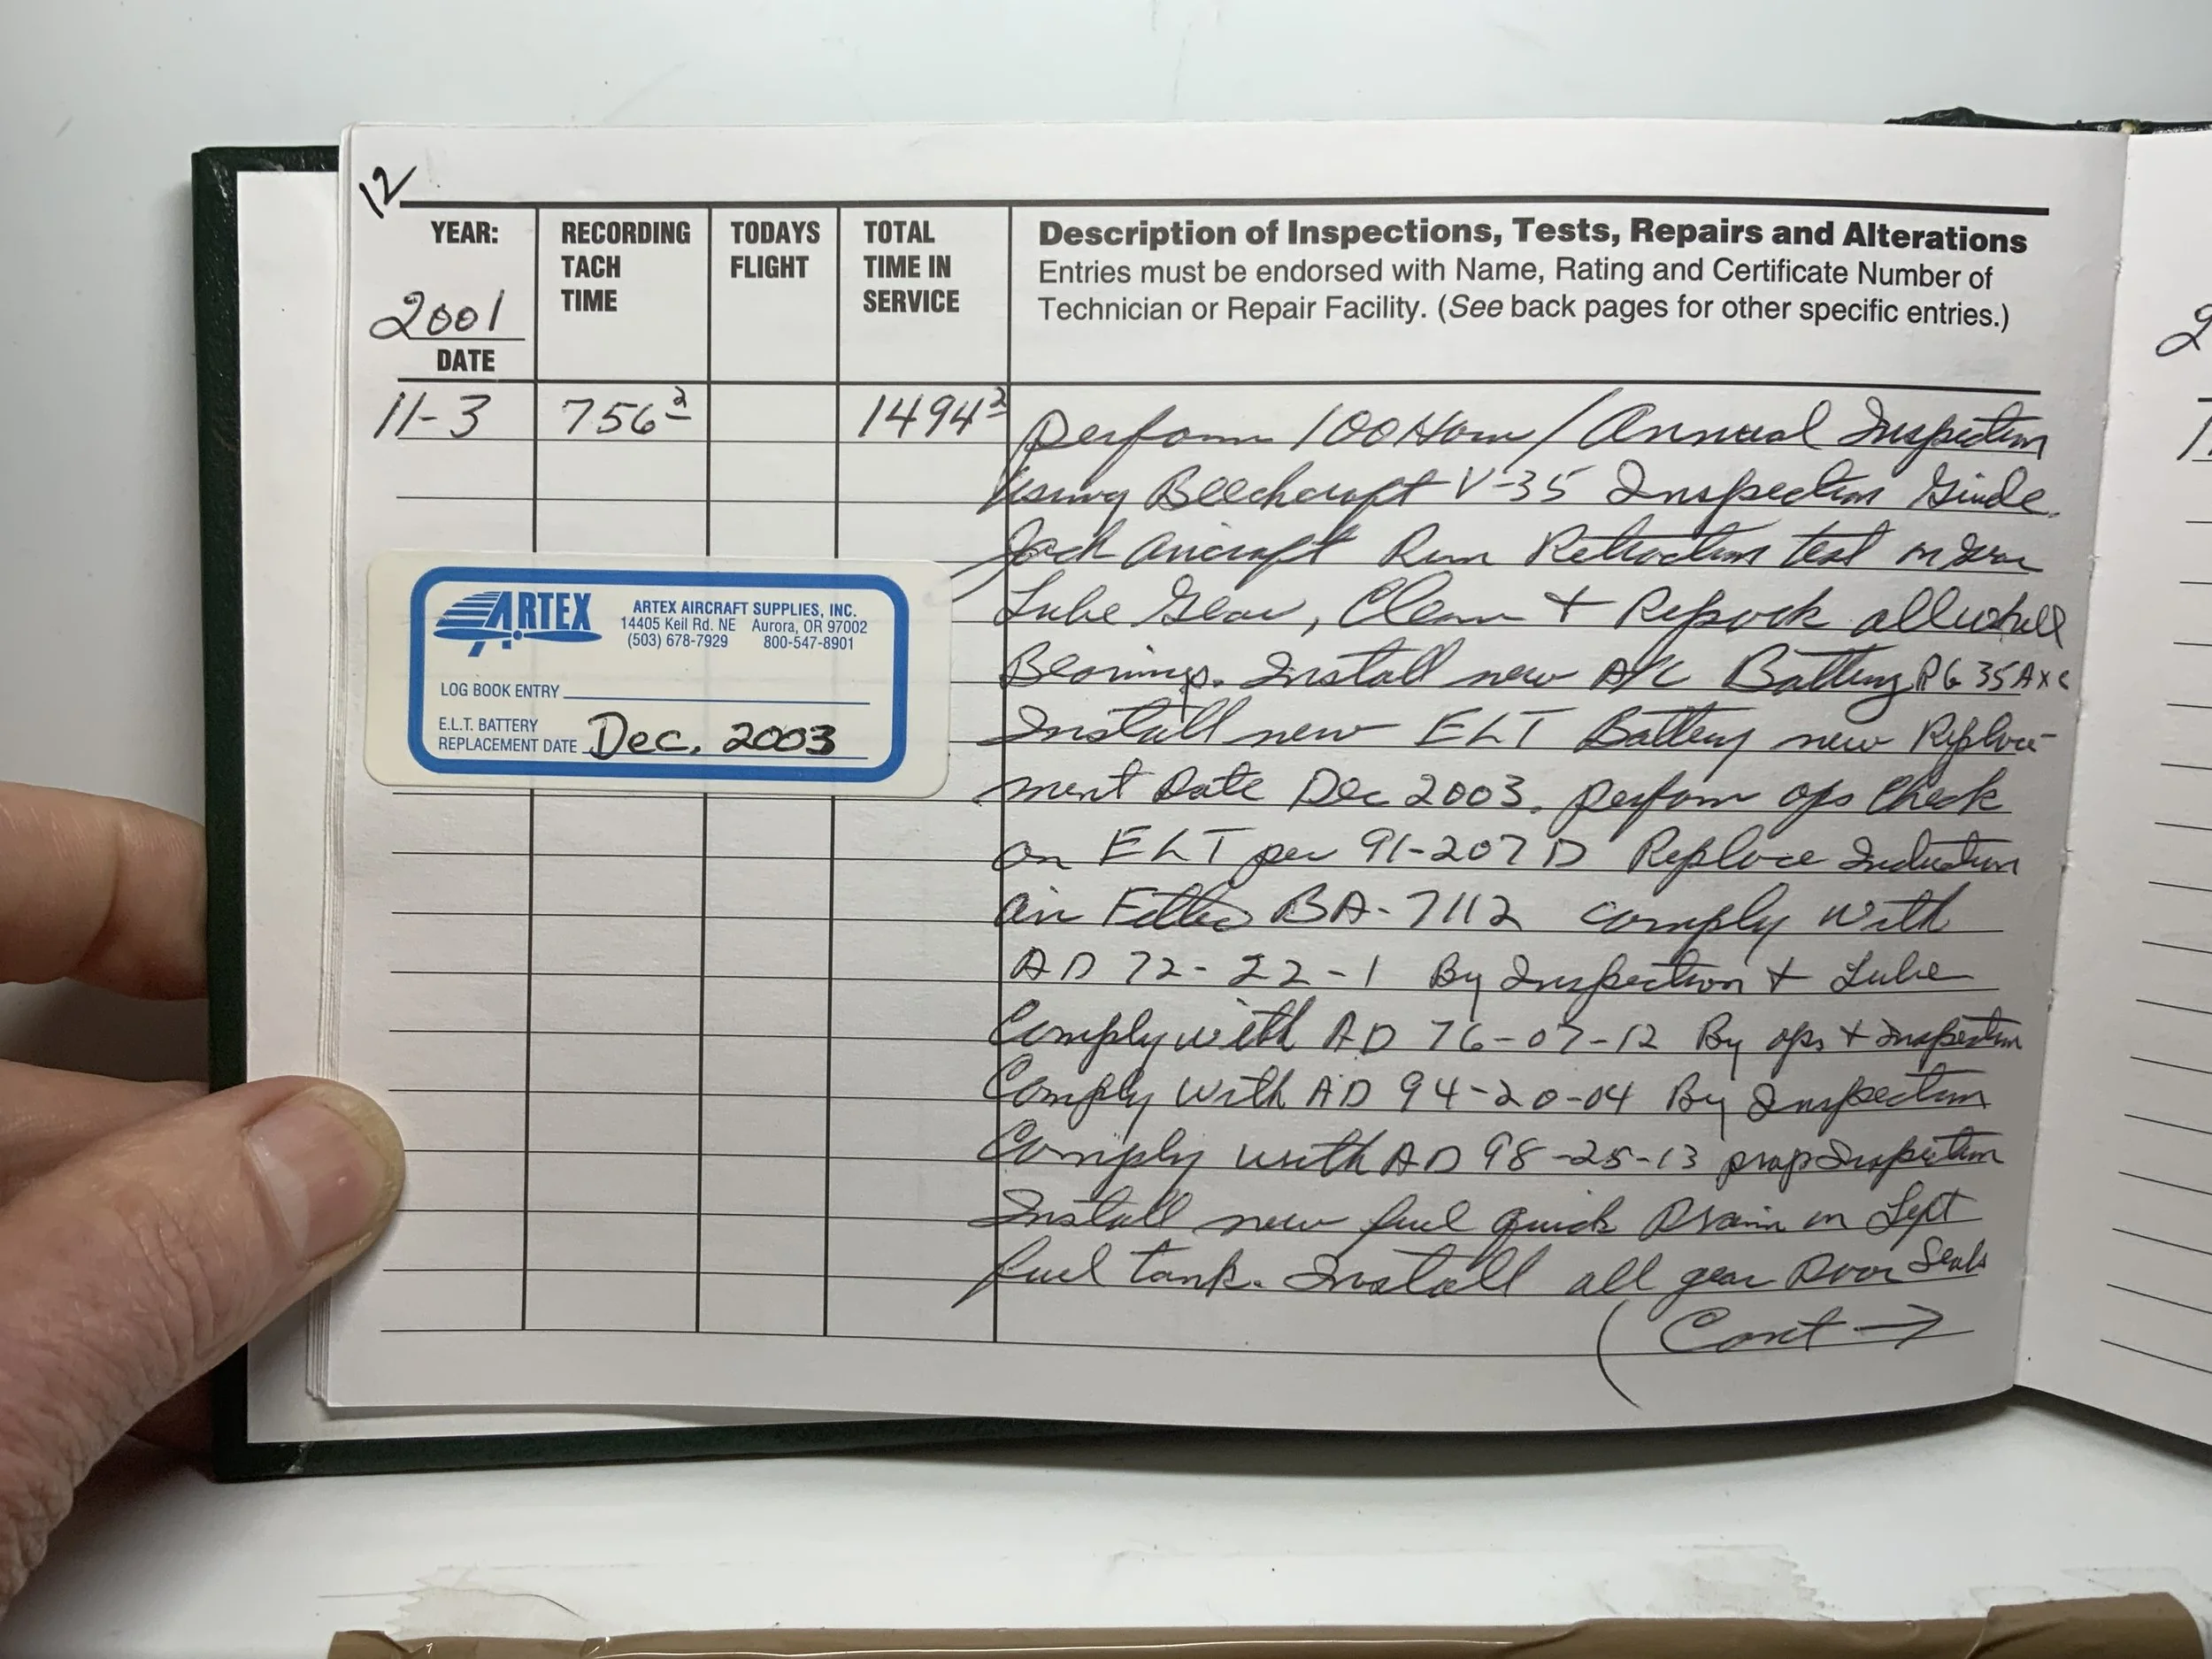 12
YEAR:
2001
DATE
RECORDING
TACH
TIME
TODAYS
FLIGHT
TOTAL
TIME IN
SERVICE
Description of Inspections, Tests, Repairs and Alterations
Entries must be endorsed with Name, Rating and Certificate Number of
Technician or Repair Facility. (See back pages for other specific entries.)
11-3 756 2 1494 2 Perform 100 Hour / Annual Inspection
Using Beechcraft V-35 Inspection Guide.
Jack aircraft Run Retraction test on Gear
Lube Gear, Clean + Repack all wheel
Bearings. Install new A/C Battery RG 35AXC
Install new ELT Battery new Replace-
ment Date Dec 2003. perform ops Check
on ELT per 91-207 D Replace Induction
air Filter BA-7112 comply with
AD 72-22-1 By Inspection + Lube
Comply with AD 76-07-12 By ops + Inspection
Comply with AD 94-20-04 By Inspection
Comply with AD 98-25-13 prop Inspection
Install new fuel quick Drain in Left
fuel tank. Install all gear Door Seals
(Cont →
ARTEX
ARTEX AIRCRAFT SUPPLIES, INC.
14405 Keil Rd. NE Aurora, OR 97002
(503) 678-7929 800-547-8901
LOG BOOK ENTRY
E.L.T. BATTERY
REPLACEMENT DATE Dec. 2003